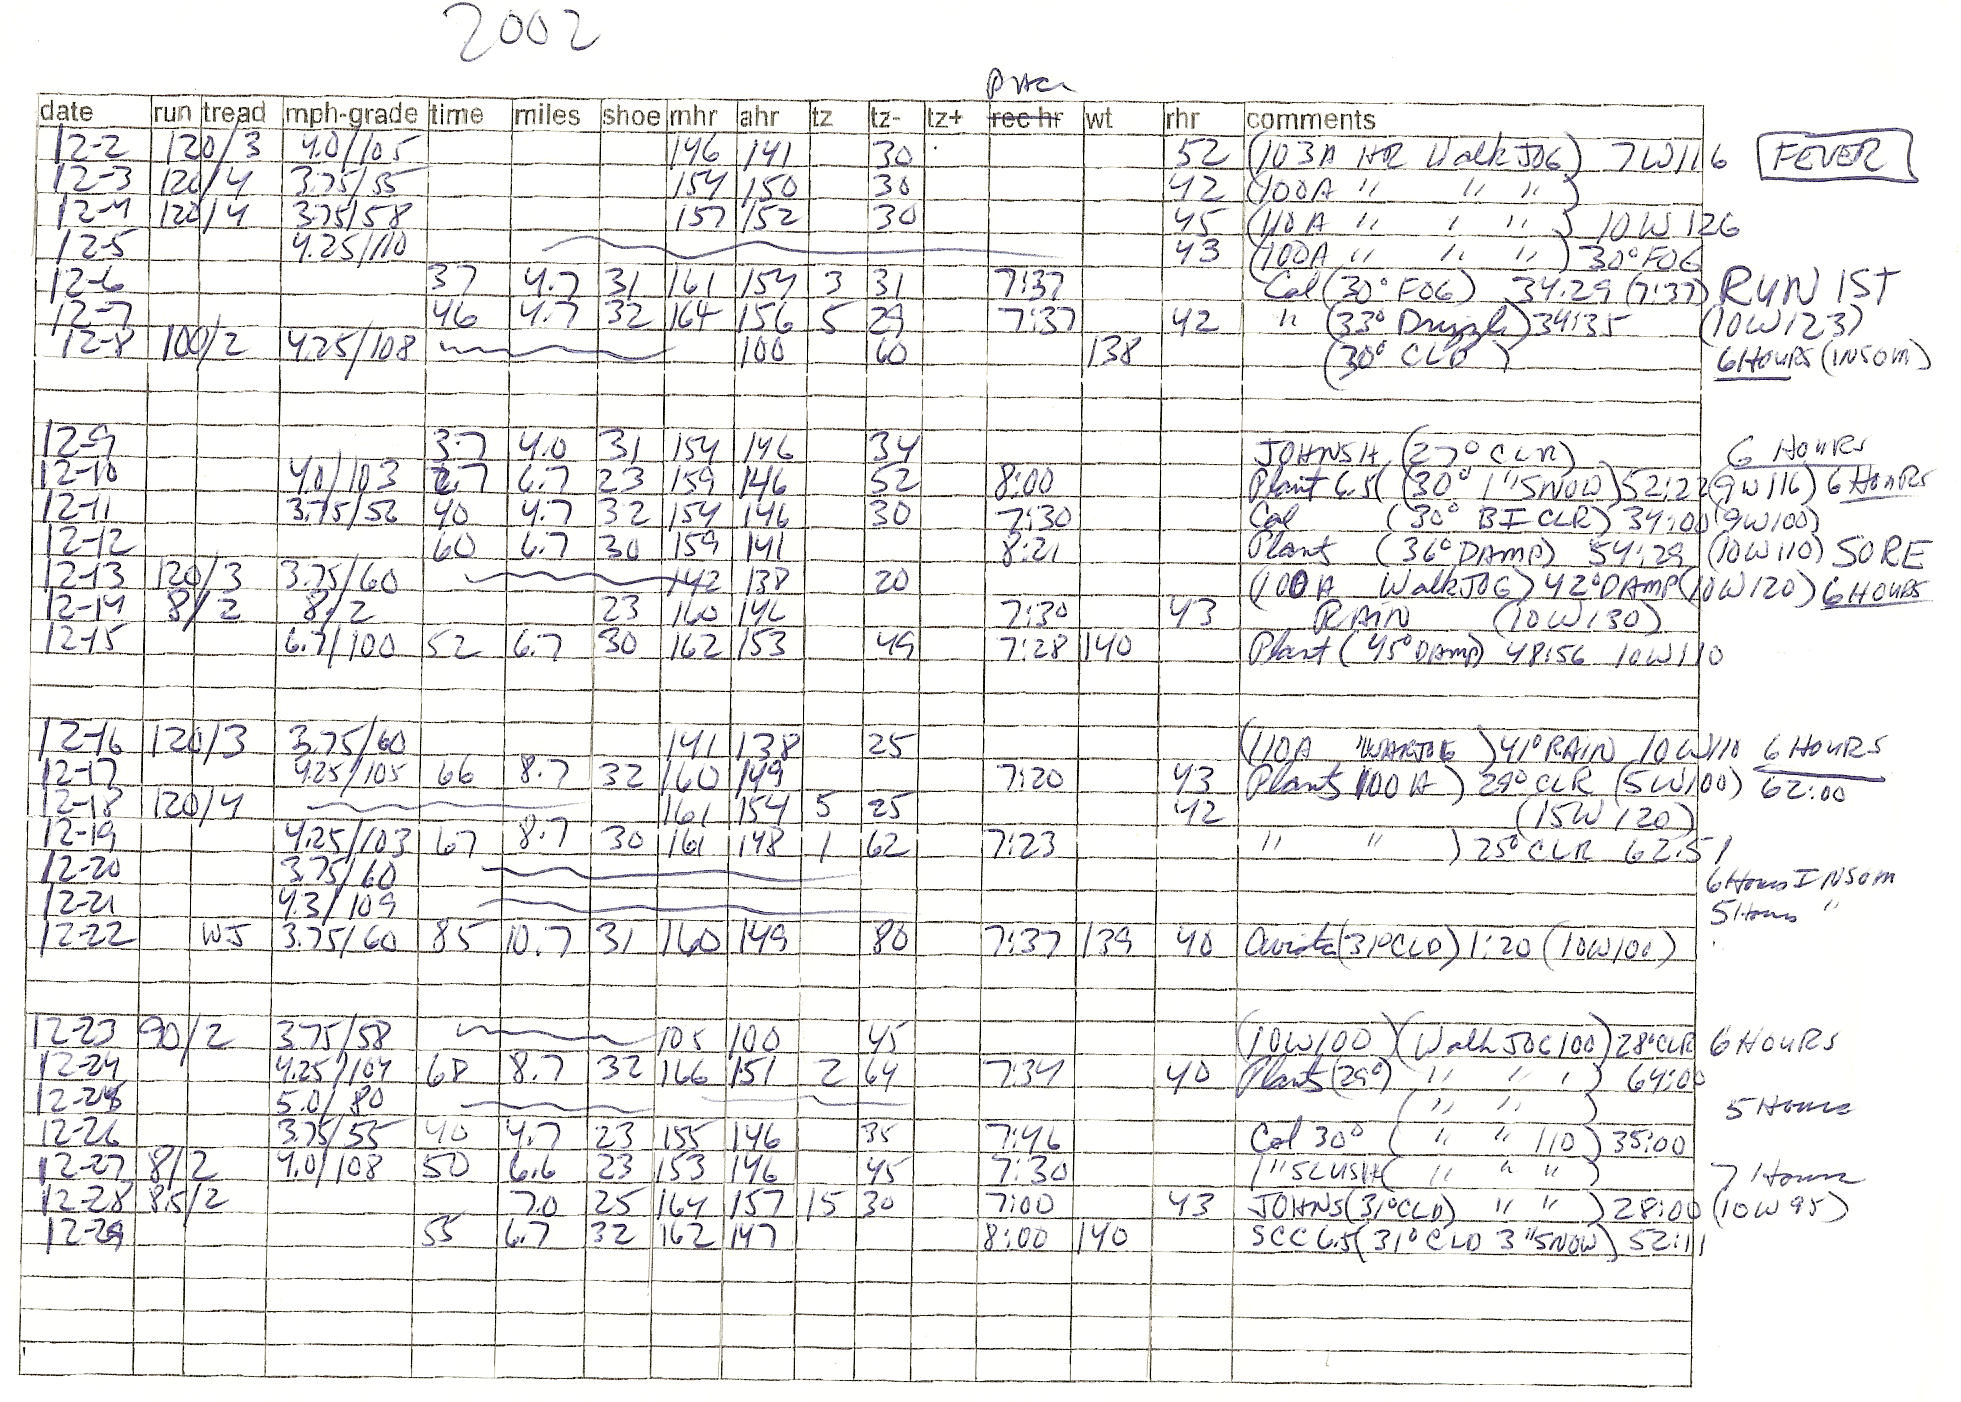 2002
PACE
date run tread mph-grade time miles shoe mhr ahr tz tz- tz+ rec hr wt rhr comments
12-2 120/3 4.0/105 146 141 30 52 (103A HR Walk JOG) 7W116 FEVER
12-3 120/4 3.75/55 154 150 30 42 (100A " " ")
12-4 120/4 3.75/58 157 152 30 45 (110A " " ") 10W126
12-5 4.25/110 43 (100A " " ") 30° FOG
12-6 37 4.7 31 161 154 3 31 7:37 Cal (30° FOG) 34:29 (7:37) RUN 1ST
12-7 46 4.7 32 164 156 5 29 7:37 42 " (33° Drizzle) 34:35 (10W123)
12-8 100/2 4.25/108 100 60 138 (30° CLD) 6 HOURS (INSOM)
12-9 37 4.0 31 154 146 34 JOHNSH (27° CLR) 6 HOURS
12-10 4.0/103 6.7 23 159 146 52 8:00 Plant 6.5 (30° 1" SNOW) 52:22 (9W116) 6 HOURS
12-11 3.75/52 40 4.7 32 154 146 30 7:30 Cal (30° CLR) 34:00 (9W100)
12-12 60 6.7 30 159 141 8:21 Plant (36° DAMP) 54:29 (10W110) SORE
12-13 120/3 3.75/60 142 138 20 (100A Walk JOG) 42° DAMP (10W120) 6 HOURS
12-14 8/2 8/2 23 160 146 7:30 43 RAIN (10W130)
12-15 6.7/100 52 6.7 30 162 153 49 7:28 140 Plant (45° DAMP) 48:56 10W110
12-16 120/3 3.75/60 141 138 25 (110A " WALKJOG) 41° RAIN 10W110 6 HOURS
12-17 4.25/105 66 8.7 32 160 149 7:20 43 Plant 100A) 29° CLR (5W100) 62:00
12-18 120/4 161 154 5 25 42 (15W120)
12-19 4.25/103 67 8.7 30 161 148 1 62 7:23 " " ) 25° CLR 62:51
12-20 3.75/60 6 Hours INSOM
12-21 4.3/109 5 Hours "
12-22 WJ 3.75/60 85 10.7 31 160 149 80 7:37 139 40 (31° CLD) 1:20 (10W100)
12-23 90/2 3.75/58 105 100 45 (10W100) (Walk JOG 100) 28° CLR 6 HOURS
12-24 4.25/104 68 8.7 32 166 151 2 64 7:34 40 Plant (29°) " " " ) 64:00
12-25 5.0/80 (" " ) 5 Hours
12-26 3.75/55 40 4.7 23 155 146 35 7:46 Cal 30° ( " " 110) 35:00
12-27 8/2 4.0/108 50 6.6 23 153 146 45 7:30 1" SLUSH ( " " ") 7 Hours
12-28 8.5/2 7.0 25 164 157 15 30 7:00 43 JOHNS (31° CLD) " " ) 28:00 (10W95)
12-29 55 6.7 32 162 147 8:00 140 SCC 6.5 (31° CLD 3" SNOW) 52:11